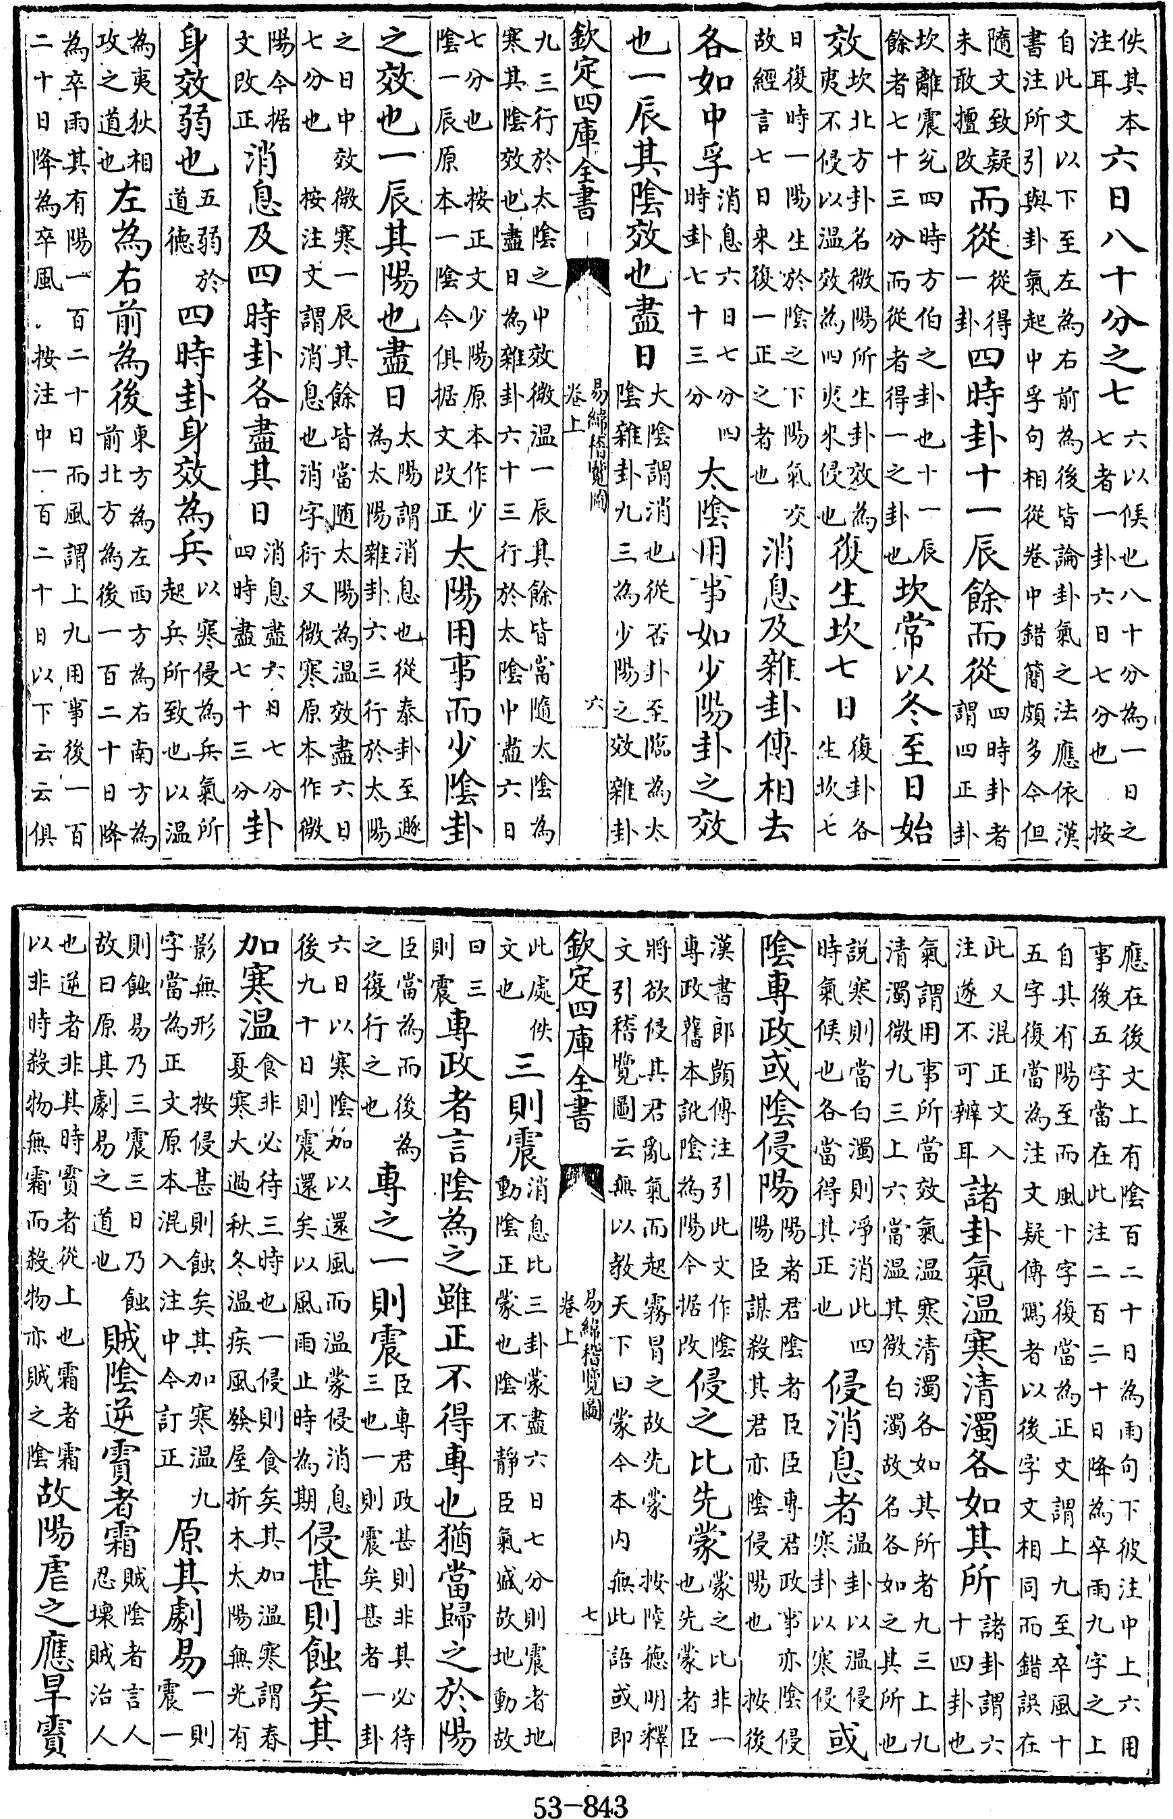 佚其本
注耳
六日八十分之七
六以候也八十分為一日之
七者一卦六日七分也 按
自此文以下至左為右前為後皆論卦氣之法應依漢
書注所引與卦氣起中孚句相從卷中錯簡頗多今但
隨文致疑
未敢擅改
而從
從得
一卦
四時卦十一辰餘而從
四時卦者
謂四正卦
坎離震兌四時方伯之卦也十一辰
餘者七十三分而從者得一之卦也
坎常以冬至日始
效
坎北方卦名微陽所生卦效為
夷不侵以溫效為四夷來侵也
復生坎七日
復卦各
生坎七
日復時一陽生於陰之下陽氣次
故經言七日來復一正之者也
消息及雜卦傳相去
各如中孚
消息六日七分四
時卦七十三分
太陰用事如少陽卦之效
也一辰其陰效也盡日
大陰謂消也從否卦至臨為太
陰雜卦九三為少陽之效雜卦
欽定四庫全書
易緯稽覽圖
卷上
六
九三行於太陰之中效微溫一辰其餘皆當隨太陰為
寒其陰效也盡日為雜卦六十三行於太陰中盡六日
七分也 按正文少陽原本作少
陰一辰原本一陰今俱据文改正
太陽用事而少陰卦
之效也一辰其陽也盡日
太陽謂消息也從泰卦至遯
為太陽雜卦六三行於太陽
之日中效微寒一辰其餘皆當隨太陽為溫效盡六日
七分也 按注文謂消息也消字衍又微寒原本作微
陽今据
文改正
消息及四時卦各盡其日
消息盡六日七分
四時盡七十三分
卦
身效弱也
五弱於
道德
四時卦身效為兵
以寒侵為兵氣所
起兵所致也以溫
為夷狄相
攻之道也
左為右前為後
東方為左西方為右南方為
前北方為後一百二十日降
為卒雨其有陽一百二十日而風謂上九用事後一百
二十日降為卒風 按注中一百二十日以下云云俱
應在後文上有陰百二十日為雨句下彼注中上六用
事後五字當在此注二百二十日降為卒雨九字之上
自其有陽至而風十字復當為正文謂上九至卒風十
五字復當為注文疑傳寫者以後字文相同而錯誤在
此又混正文入
注遂不可辨耳
諸卦氣溫寒清濁各如其所
諸卦謂六
十四卦也
氣謂用事所當效氣溫寒清濁各如其所者九三上九
清濁微九三上六當溫其微白濁故名各如之其所也
說寒則當白濁則淨消此四
時氣候也各當得其正也
侵消息者
溫卦以溫侵
寒卦以寒侵
或
陰專政或陰侵陽
陽者君陰者臣臣專君政事亦陰侵
陽臣謀殺其君亦陰侵陽也 按後
漢書郎顗傳注引此文作陰
專政舊本訛陰為陽今据改
侵之比先蒙
蒙之比非一
也先蒙者臣
將欲侵其君亂氣而起霧冒之故先蒙 按陸德明釋
文引稽覽圖云無以教天下曰蒙今本內無此語或即
欽定四庫全書
易緯稽覽圖
卷上
七
此處佚
文也
三則震
消息比三卦蒙盡六日七分則震者地
動陰正蒙也陰不靜臣氣盛故地動故
曰三
則震
專政者言陰為之雖正不得專也猶當歸之於陽
臣當為而後為
之復行之也
專之一則震
臣專君政甚則非其必待
三也一則震矣甚者一卦
六日以寒陰加以還風而溫蒙侵消息
後九十日則震還矣以風雨止時為期
侵甚則蝕矣其
加寒溫
食非必待三時也一侵則食矣其加溫寒謂春
夏寒大過秋冬溫疾風發屋折木太陽無光有
影無形 按侵甚則蝕矣其加寒溫九
字當為正文原本混入注中今訂正
原其劇易
一則
震一
則蝕易乃三震三日乃蝕
故曰原其劇易之道也
賊陰逆霣者霜
賊陰者言人
忍壞賊治人
也逆者非其時霣者從上也霜者霜
以非時殺物無霜而殺物亦賊之陰
故陽虐之應旱霣
53-843